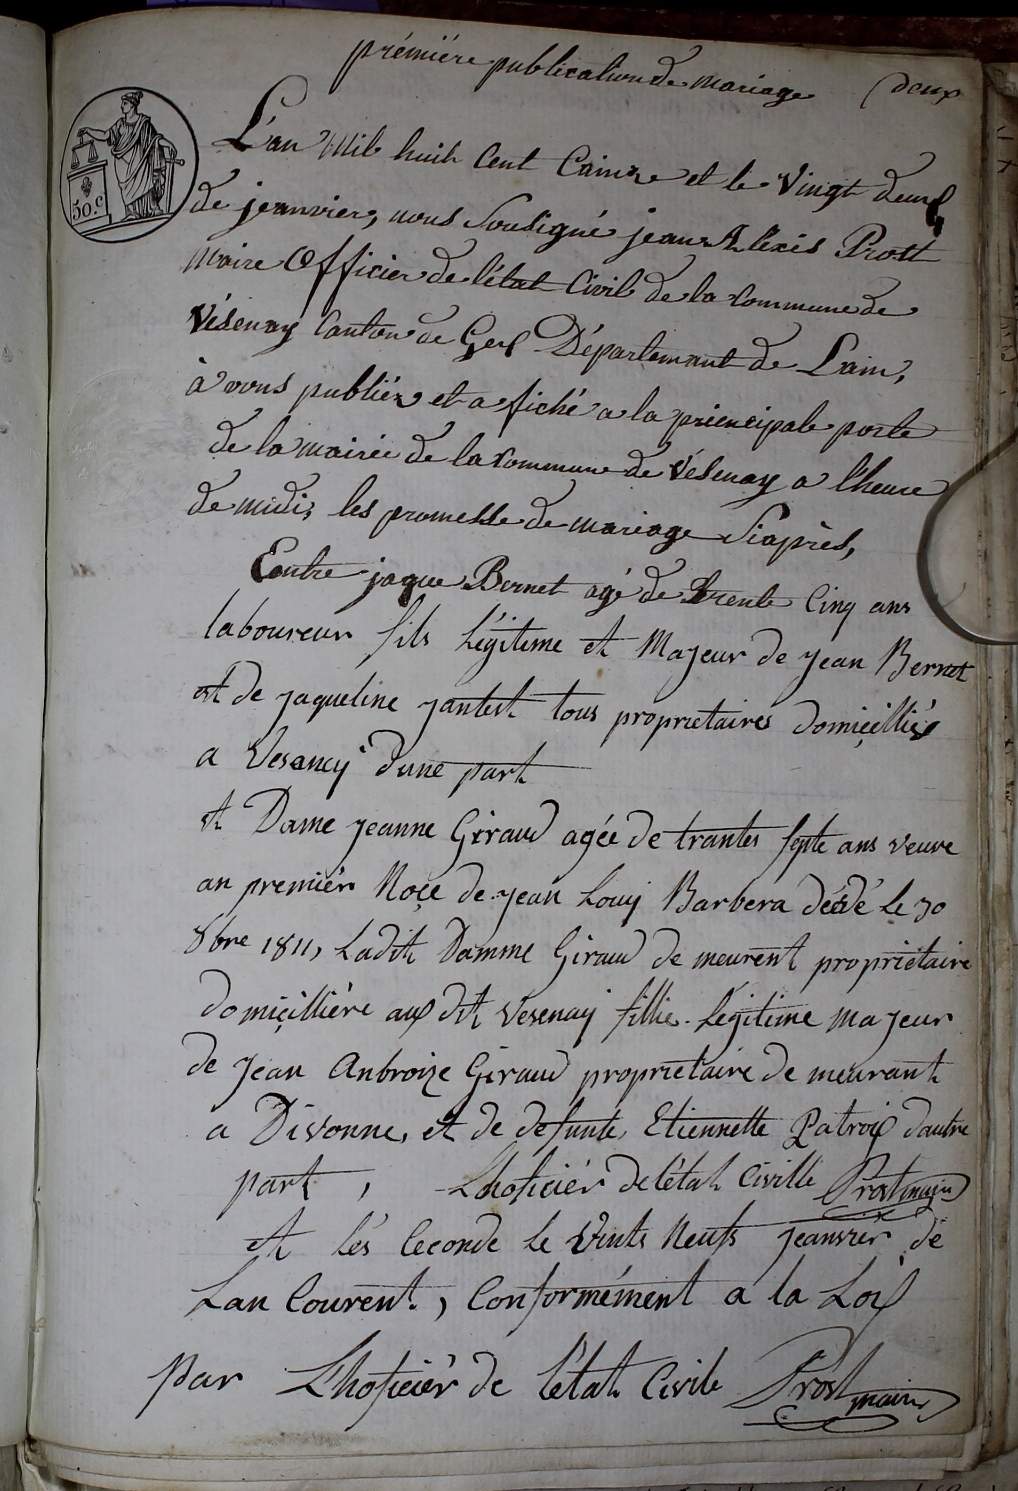 prémiére publication de mariage (deux
50.c
L'an Mil huit Cent Cainze et le vingt deux
de jeanvier, nous Sousigné jean Alexis Prost
Maire Officier de l'état Civil de la Commune de
Vésenay Canton de Gex Département de Lain,
à vons publiér et a fiché a la priencipale porte
de la mairie de la Commune de Vésenay a l'heure
de midi, les promesse de mariage Siaprès,
Eentre jaque Bernet agé de trente Cinq ans
laboureur fils Légitime et Majeur de jean Bernet
et de jaqueline jantet tous proprietaires domiçilliés
a Vesancy dune part
et Dame jeanne Giraud agée de trantes septe ans veuve
an premiér Noçe de jean Louij Barbera décédé Le 30
8bre 1811, Ladit Damme Giraud de meurent propriétaire
domiçilliére aux dit Vesenay fillie Légitime majeur
de jean Anbroize Giraud proprietaire de meurant
a Divonne, et de defunte, Etiennette Patroix dautre
part, Lhoficiér de létat Civille Prost maire
et lés Ceconde le vints neufs jeanvier de
Lan Courent, Conformément a la Loix
par Lhoficiér de l'état Civile Prost maire